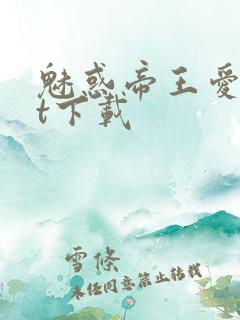 魅惑帝王愛
t下載
雪條
未经同意禁止转载